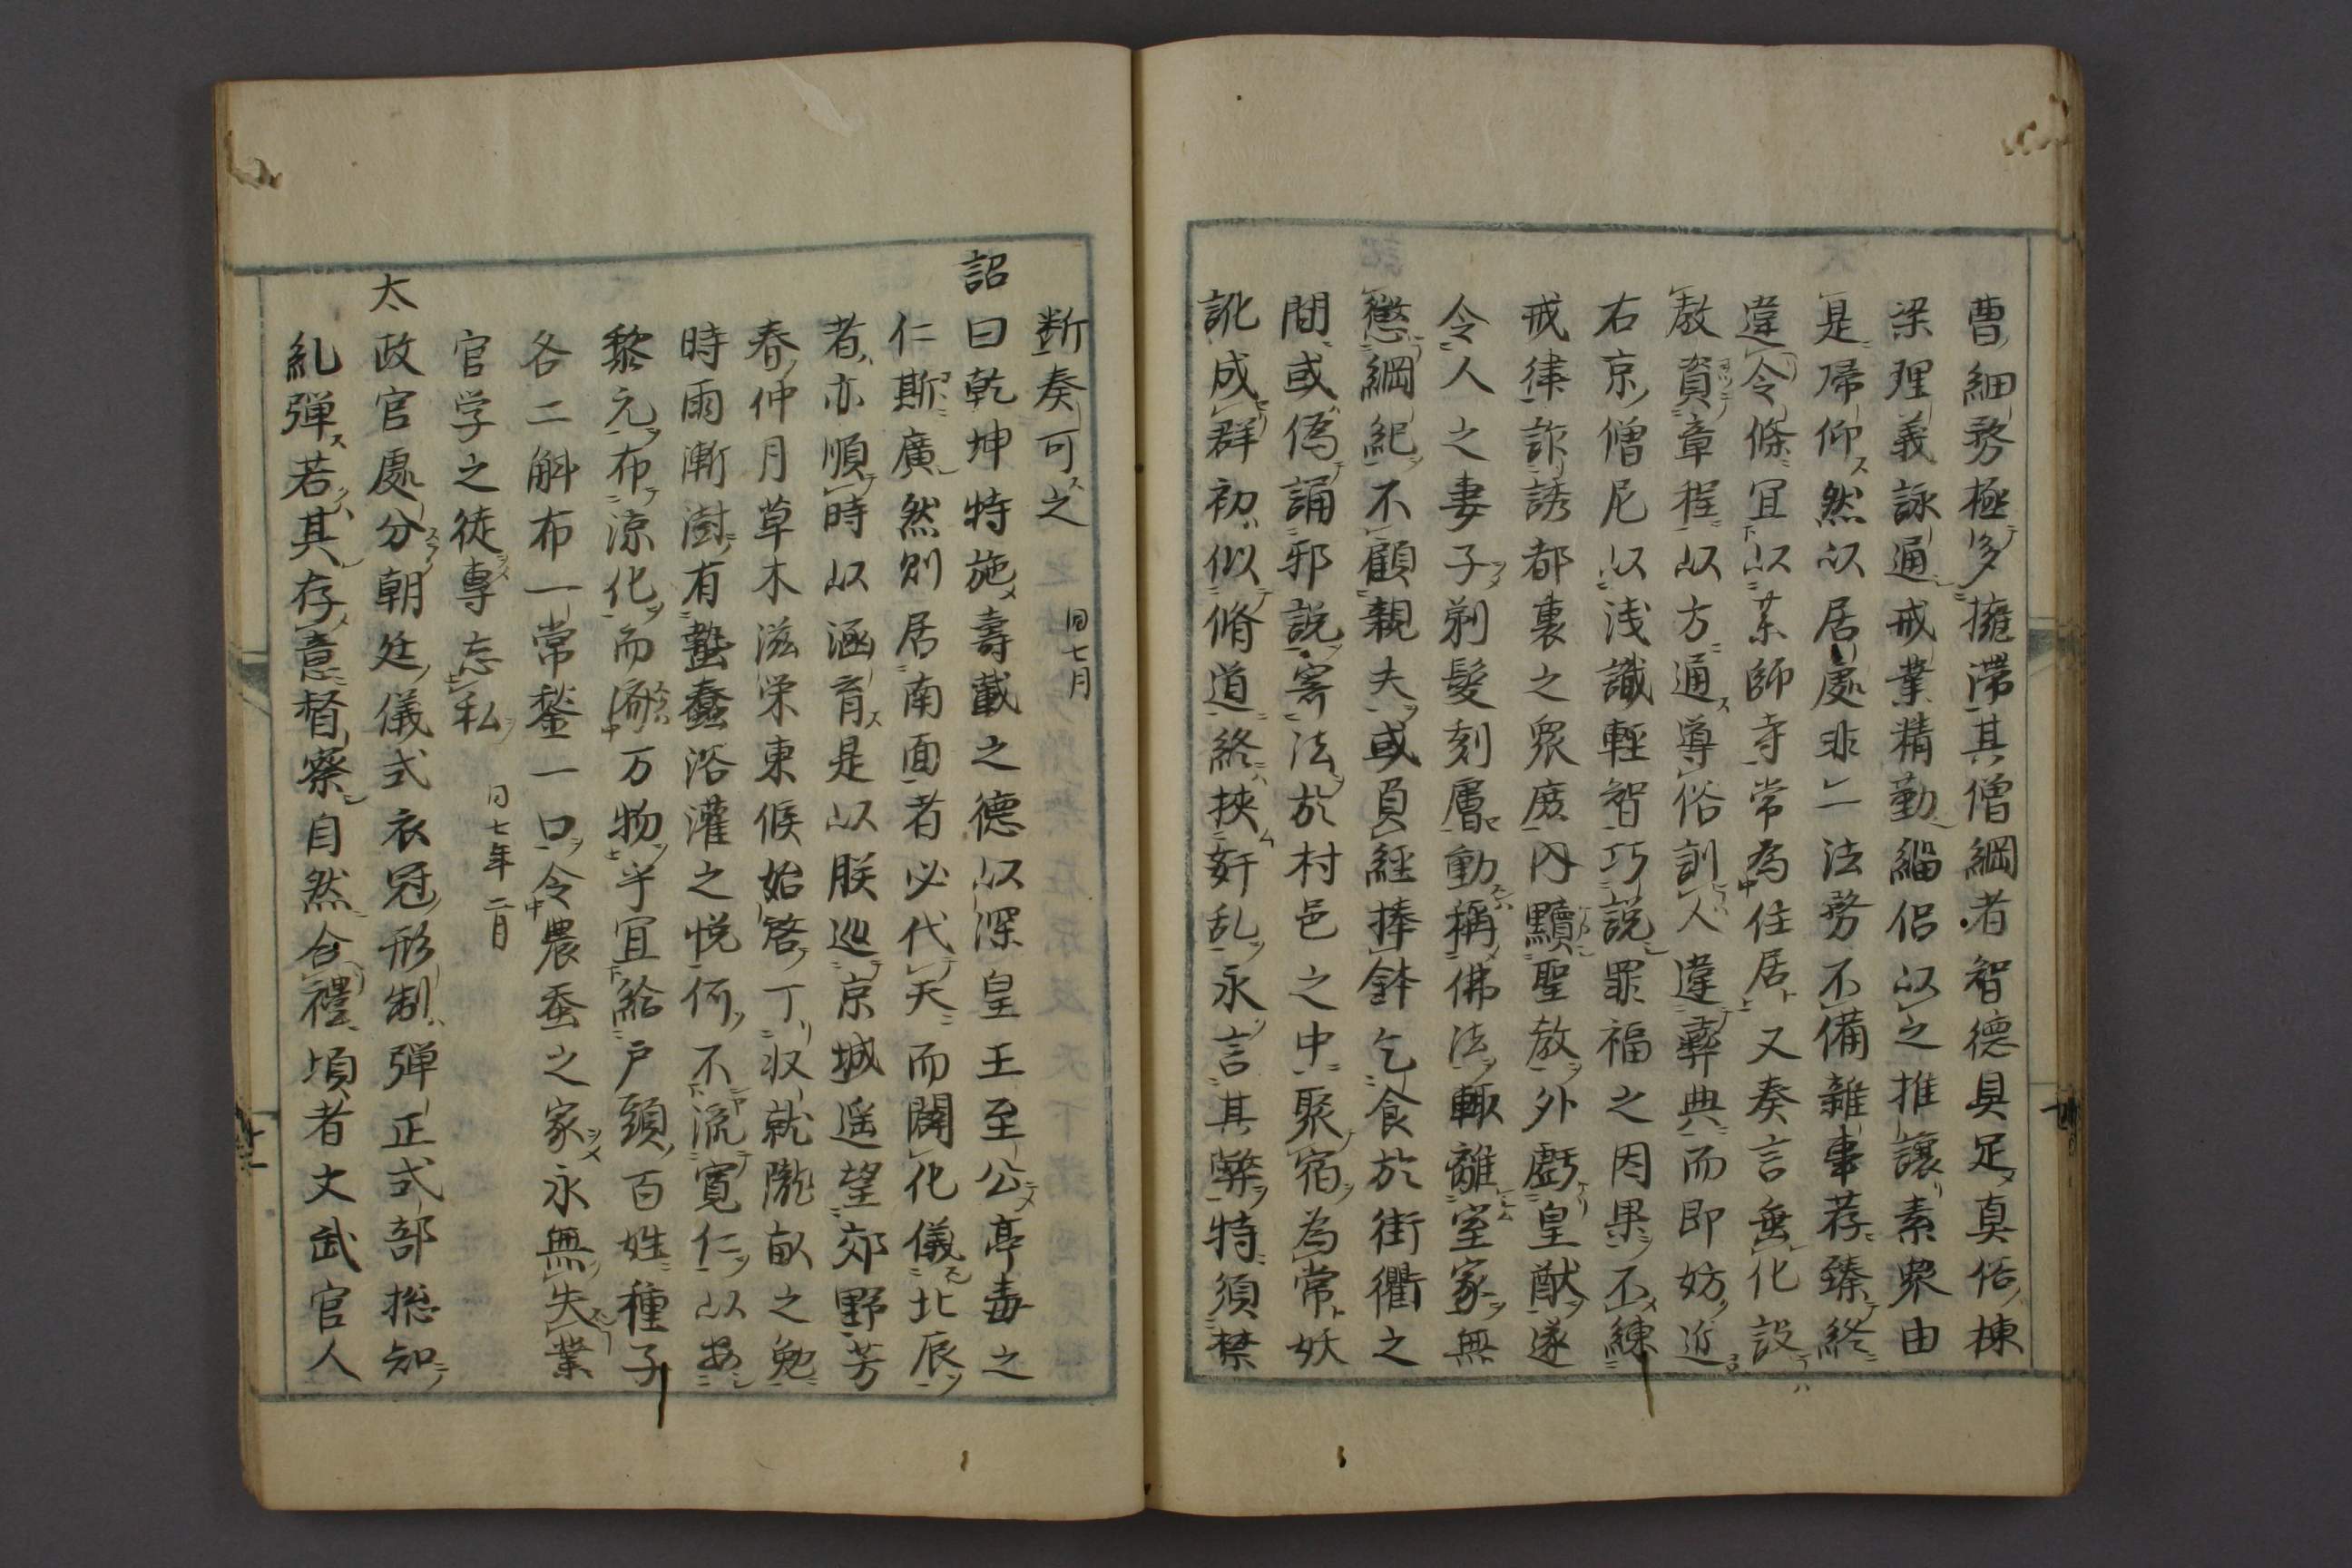 曹細務極多擁滞其僧綱者智德具足真俗棟
梁理義詠通戒業精勤緇侶以之推讓素衆由
是帰仰然以居處非一法務不備雜事荐臻終
違令條宜以薬師寺常為住居又奏言垂化設
教資章程以方通導俗訓人違彝典而即妨近
右京僧尼以浅識輕智巧説罪福之因果不練
戒律詐誘都裏之衆庶内黷聖教外虧皇猷遂
令人之妻子剃髮刻膚動稱佛法輙離室家無
懲綱紀不顧親夫或負經捧鉢乞食於街衢之
間或偽誦邪説寄法於村邑之中聚宿為常妖
訛成群初似脩道終挾奸乱永言其弊特須禁
断奏可之 同七月
詔曰乾坤特施壽載之德以深皇王至公亭毒之
仁斯廣然則居南面者必代天而闡化儀北辰
者亦順時以涵育是以朕巡京城遥望郊野芳
春仲月草木滋栄東候始啓丁収就隴畝之勉
時雨漸澍有蟄蠢浴灌之悦何不流寛仁以安
黎元布涼化而済万物乎宜給戸頭百姓種子
各二斛布一常鍬一口令農蚕之家永無失業
官学之徒專忘私 同七年二月
太政官處分朝廷儀式衣冠形制弾正式部揔知
糺弾若其存意督察自然合禮頃者文武官人
十一